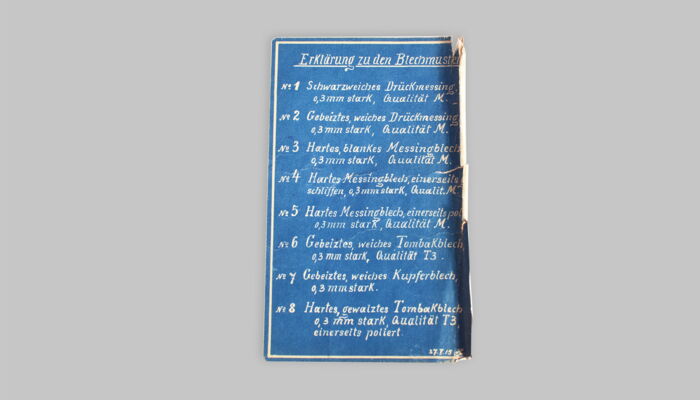 Erklärung zu den Blechmuster
No 1 Schwarzweiches Drückmessing,
0,3 mm stark, Qualität M.
No 2 Gebeiztes, weiches Drückmessing
0,3 mm stark, Qualität M.
No 3 Hartes, blankes Messingblech
0,3 mm stark, Qualität M.
No 4 Hartes Messingblech, einerseits
schliffen, 0,3 mm stark, Qualit. M.
No 5 Hartes Messingblech, einerseits pol
0,3 mm stark, Qualität M.
No 6 Gebeiztes, weiches Tombakblech,
0,3 mm stark, Qualität T3.
No 7 Gebeiztes, weiches Kupferblech,
0,3 mm stark.
No 8 Hartes, gewalztes Tombakblech
0,3 mm stark, Qualität T3,
einerseits poliert.